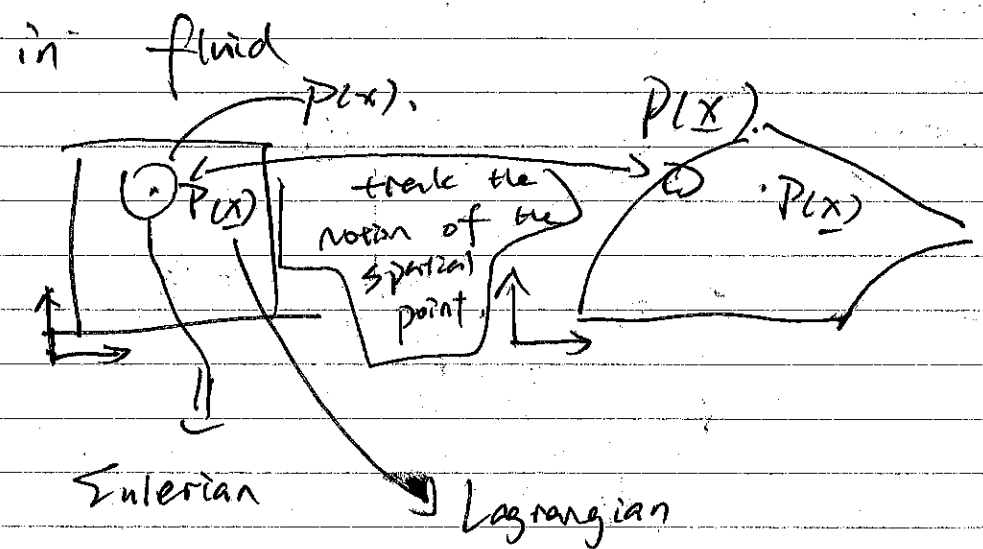 in fluid
P(x).
P(x).
P(x)
P(x)
track the
motion of the
spatial
point.
Eulerian
Lagrangian